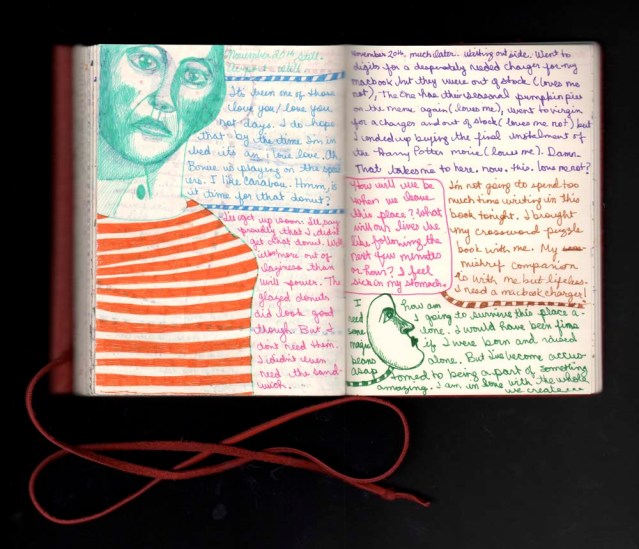 November 20th still.
It's been one of those
love you/love you
not days. I do hope
that by the time I'm in
bed its all love. Oh,
Bowie is playing on the speak
ers. I like Carabou. Hmm, is
it time for that donut?
I'll get up soon. I'll say
proudly that I didn't
get that donut.
more out of
laziness than
will power. The
glazed donuts
did look good
though. But I
don't need them.
I didn't even
need the sand-
wich.
November 20th, much later. Writing out side. Went to
digits for a desperately needed charger for my
macbook, but they were out of stock (loves me
not), The One has their seasonal pumpkin pies
on the menu again (loves me), went to virgin
for a charger and out of stock (loves me not) but
I ended up buying the final instalment of
the Harry Potter movie (loves me). Damn.
That takes me to here. now. this. love me not?
How will we be
when we leave
this place? What
will our lives be
like following the
next few minutes
or hour? I feel
sick in my stomach.
I'm not going to spend too
much time writing in this
book tonight. I brought
my crossword puzzle
book with me. My
companion
is with me but lifeless.
I need a macbook charger!
I
need
some
magic
beans
asap
how am
I going to survive this place a-
lone. I would have been fine
if I were born and raised
alone. But I've become accus-
tomed to being a part of something
amazing. I am in love with the whole
we create...